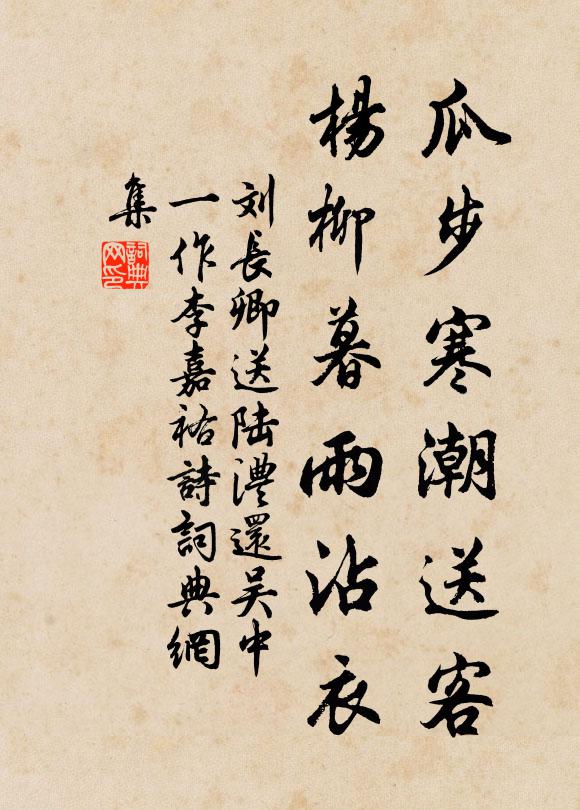 瓜步寒潮送客
楊柳暮雨沾衣
刘長卿送陆澧還吴中
一作李嘉祐詩詞典網
集
詞典
网印